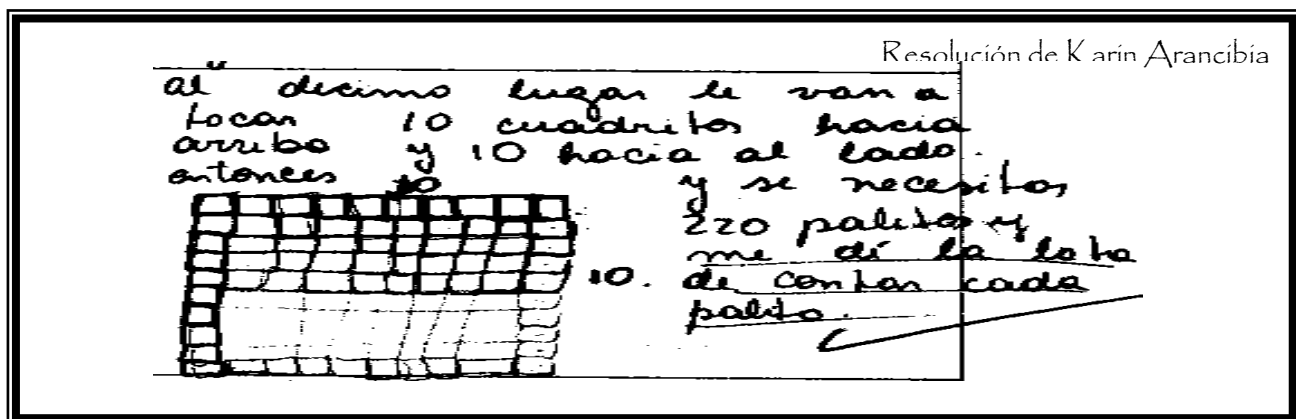 Resolución de Karin Arancibia
al decimo lugar le van a
tocar 10 cuadritos hacia
arriba y 10 hacia al lado.
entonces 10 y se necesitos
220 palitos y
me dí la lata
10. de contar cada
palito.